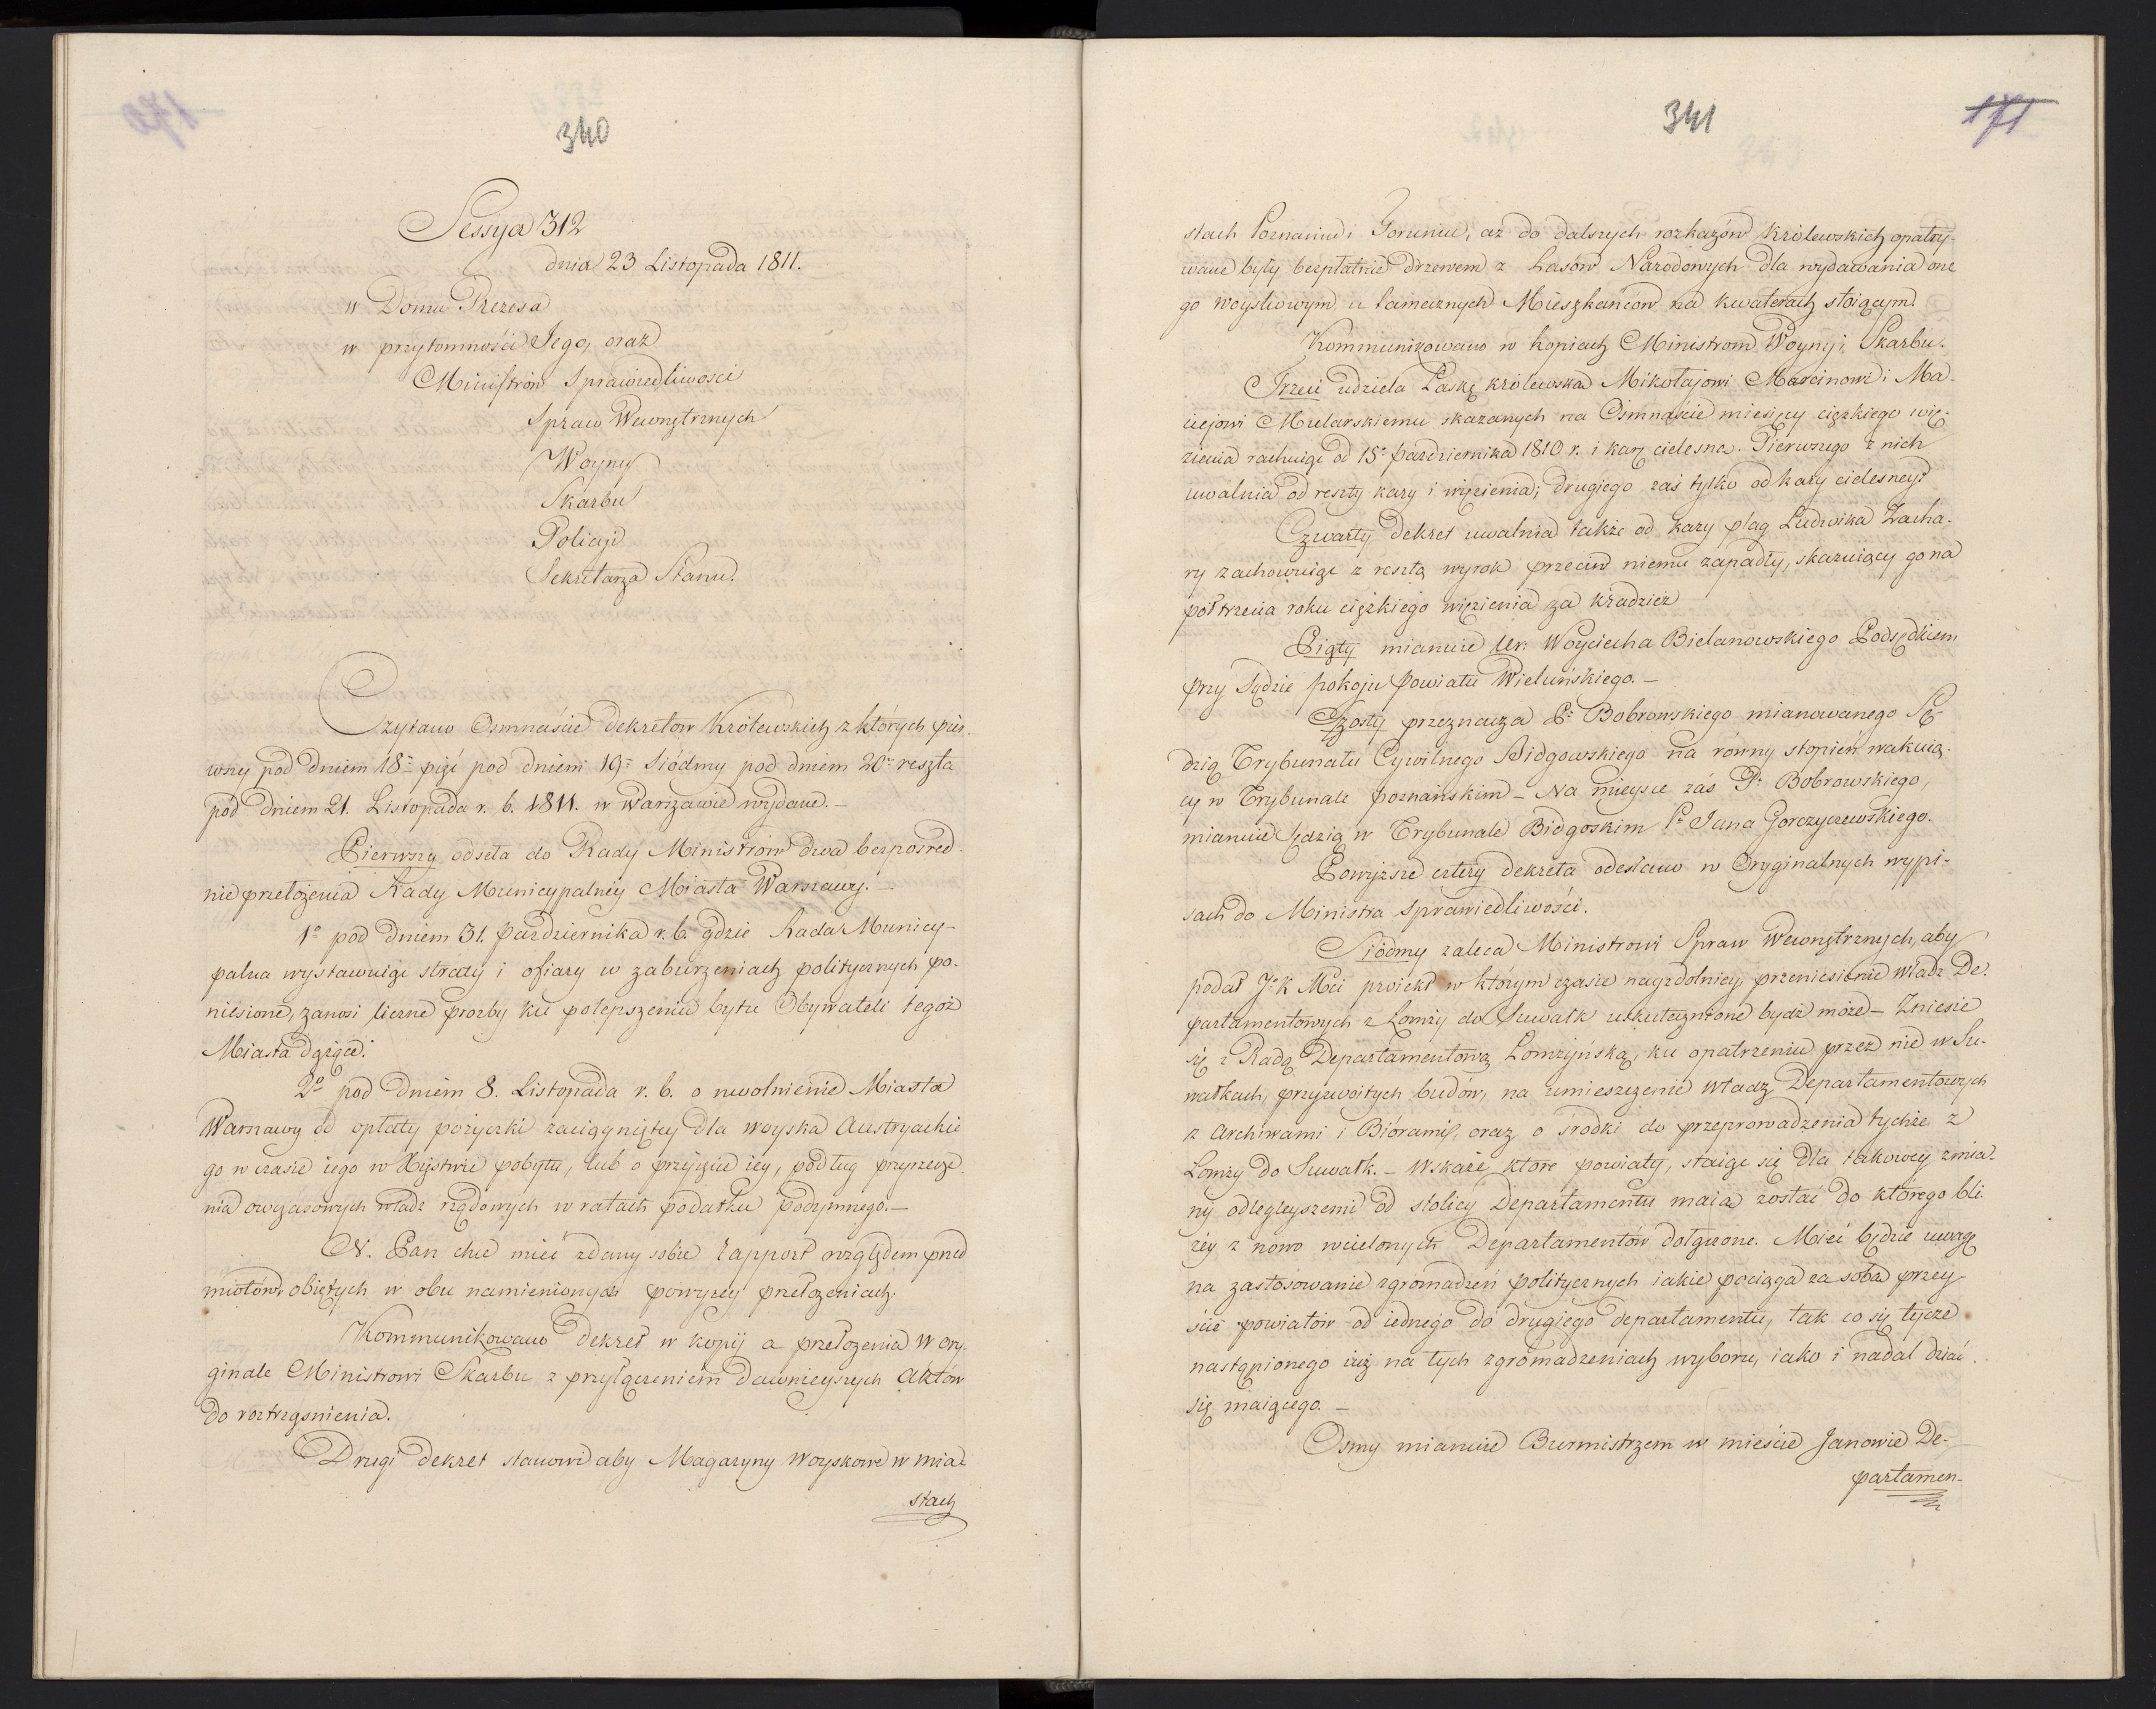 340
Sessya 312
dnia 23 Listopada 1811.
w Domu Prezesa
w przytomności Jego, oraz
Ministrów Sprawiedliwości
Spraw Wewnętrznych
Woyny
Skarbu
Policyi
Sekretarza Stanu.
Czytano Osmnaście dekretow Królewskich z których pier-
wszy pod dniem 18º pięć pod dniem 19º Siódmy pod dniem 20º reszta
pod dniem 21. Listopada r. b. 1811. w Warszawie wydane. –
Pierwszy odseła do Rady Ministrów dwa bezpośred-
nie przełożenia Rady Municypalnéy Miasta Warszawy. –
1º pod dniem 31. Października r. b. gdzie Rada Municy-
palna wystawuiąc straty i ofiary w zaburzeniach politycznych po-
niesione, zanosi liczne proźby ku polepszeniu bytu Obywateli tegoż
Miasta dążące.
2º pod dniem 8. Listopada r. b. o uwolnienie Miasta
Warszawy od opłaty pożyczki zaciągniętey dla woyska Austryackie
go w czasie iego w Xięstwie pobytu, lub o przyięcie iey, podług przyrzecze-
nia owczasowych władz rządowych w ratach podatku podymnego. –
N. Pan chce mieć zdany sobie rapport względem przed
miotów obiętych w obu namienionych powyżey przełożeniach.
Kommunikowano Dekret w kopij a przełożenia w ory-
ginale Ministrowi Skarbu z przyłączeniem dawnieyszych Aktów
do roztrząśnienia.
Drugi Dekret stanowi aby Magazyny Woyskowe w mia-
stach
341
171
stach Poznaniu i Toruniu, aż do dalszych rozkazów Królewskich opatry-
wane były bezpłatnie drzewem z Lasów Narodowych dla wydawania one
go woyskowym u tamecznych Mieszkańców na kwaterach stoiącym.
Kommunikowano w kopiach Ministrom Woyny i Skarbu.
Trzeci udziela Łaskę królewska Mikołajowi Marcinowi i Ma-
ciejowi Mularskiemu skazanych na Osmnaście miesięcy ciężkiego wię-
zienia rachuiąc od 15º Października 1810 r. i karę cielesną. Pierwszego z nich
uwalnia od reszty kary i więzienia; drugiego zaś tylko od kary cielesney.
Czwarty Dekret uwalnia także od kary plag Ludwika Zacha-
ry zachowuiąc z resztą wyrok przeciw niemu zapadły, skazuiący go na
półtrzecia roku ciężkiego więzienia za kradzież
Piąty mianuie Ur: Woyciecha Bielanowskiego Podsędkiem
przy Sądzie pokoju Powiatu Wieluńskiego. –
Szósty przeznacza P: Bobrowskiego mianowanego Sę-
dzią Trybunału Cywilnego Bidgowskiego na równy stopień wakuią-
cy w Trybunale poznańskim – Na mieysce zaś P: Bobrowskiego,
mianuie Sędzią w Trybunale Bidgoskim P: Jana Gorczyczewskiego.
Powyższe cztery dekreta odesłano w Oryginalnych wypi-
sach do Ministra Sprawiedliwości.
Siódmy zaleca Ministrowi Spraw Wewnętrznych, aby
podał J: K Mci proiekt w którym czasie nayzdolniey przeniesienie władz De-
partamentowych z Łomży do Suwałk uskutecznione bydź może – Zniesie
się z Radą Departamentową Łomżyńską, ku opatrzeniu przez nie w Su-
wałkach, przyzwoitych budów, na umieszczenie władz Departamentowych
z Archiwami i Biórami, oraz o środki do przeprowadzenia tychże z
Łomży do Suwałk. – Wskaże które powiaty, staiąc się dla takowey zmia-
ny odległeyszemi od stolicy Departamentu maią zostać do którego bli-
żey z nowo wcielonych Departamentów dołączone. Mieć będzie uwagę
na zastosowanie zgromadzeń politycznych iakie pociąga za sobą przey-
ście powiatów od iednego do drugiego departamentu, tak co się tycze
nastąpionego już na tych zgromadzeniach wyboru, iako i nadal dziać
się maiącego. –
Osmy mianuie Burmistrzem w mieście Janowie De-
partamen-